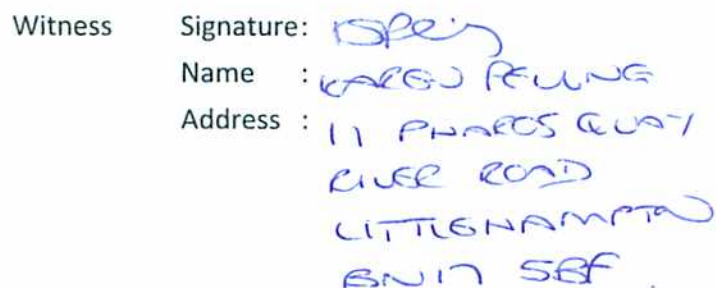 Witness Signature:
Name : KAREN PELLING
Address : 11 PHAROS QUAY
RIVER ROAD
LITTLEHAMPTON
BN17 5BF.